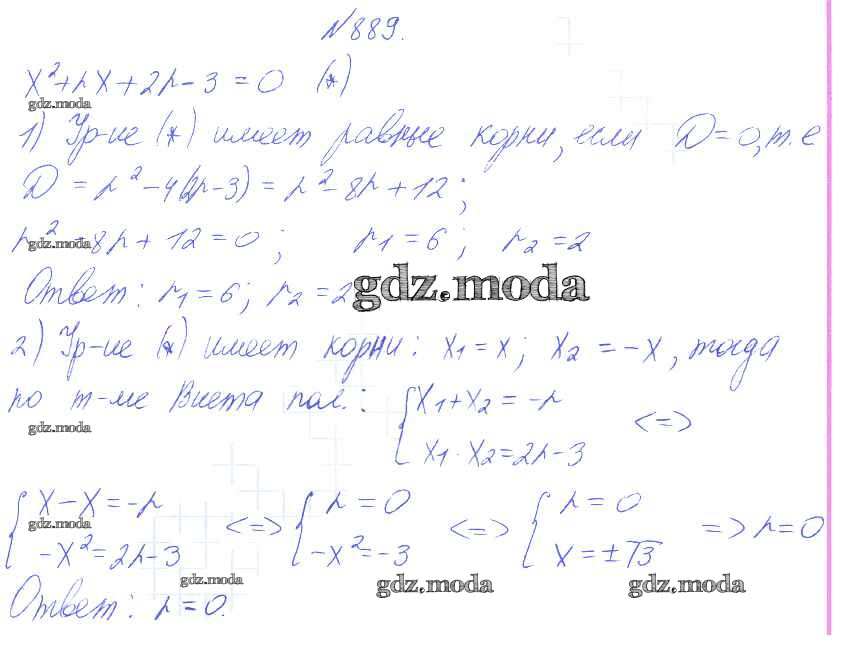 №889.
x²+рx+2р-3=0 (*)
gdz.moda
1) Ур-ие (*) имеет равные корни, если D=0, т.е
D=р²-4(2р-3)=р²-8р+12;
р²-8р+12=0; р₁=6; р₂=2
gdz.moda
Ответ: р₁=6; р₂=2
gdz.moda
2) Ур-ие (*) имеет корни: x₁=x; x₂=-x, тогда
по т-ме Виета пол.: { x₁+x₂=-р
x₁·x₂=2р-3 <=>
gdz.moda
{ x-x=-р <=> { р=0 <=> { р=0 => р=0
gdz.moda
-x²=2р-3 -x²=-3 x=±√3
gdz.moda gdz.moda gdz.moda
Ответ: р=0.